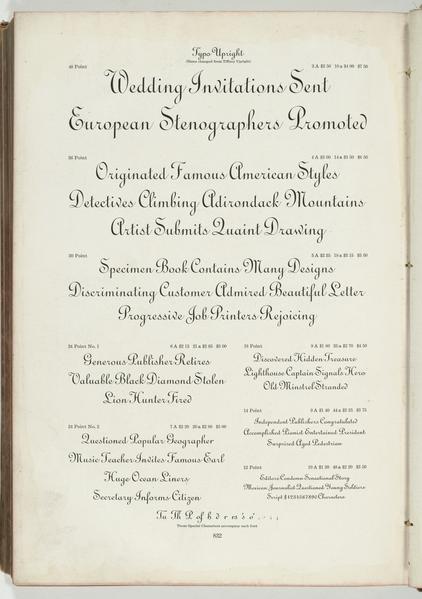 Typo Upright
(Name changed from Tiffany Upright)
48 Point
3 A $3 50 10 a $4 00 $7 50
Wedding Invitations Sent
European Stenographers Promoted
36 Point
Originated Famous American Styles
Detectives Climbing Adirondack Mountains
Artist Submits Quaint Drawing
30 Point
Specimen Book Contains Many Designs
Discriminating Customer Admired Beautiful Letter
Progressive Job Printers Rejoicing
24 Point No. 1
Generous Publisher Retires
Valuable Black Diamond Stolen
Lion Hunter Fired
24 Point No. 2
Questioned Popular Geographer
Music Teacher Invites Famous Earl
Huge Ocean Liners
Secretary Informs Citizen
18 Point
Discovered Hidden Treasure
Lighthouse Captain Signals Hero
Old Minstrel Stranded
14 Point
Independent Publishers Congratulated
Accomplished Pianist Entertained President
Surprised Aged Pedestrian
12 Point
Editors Condemn Sensational Story
Mexican Journalist Questioned Young Soldiers
Script $1234567890 Characters
Tu Th P of
These Special Characters accompany each font
832